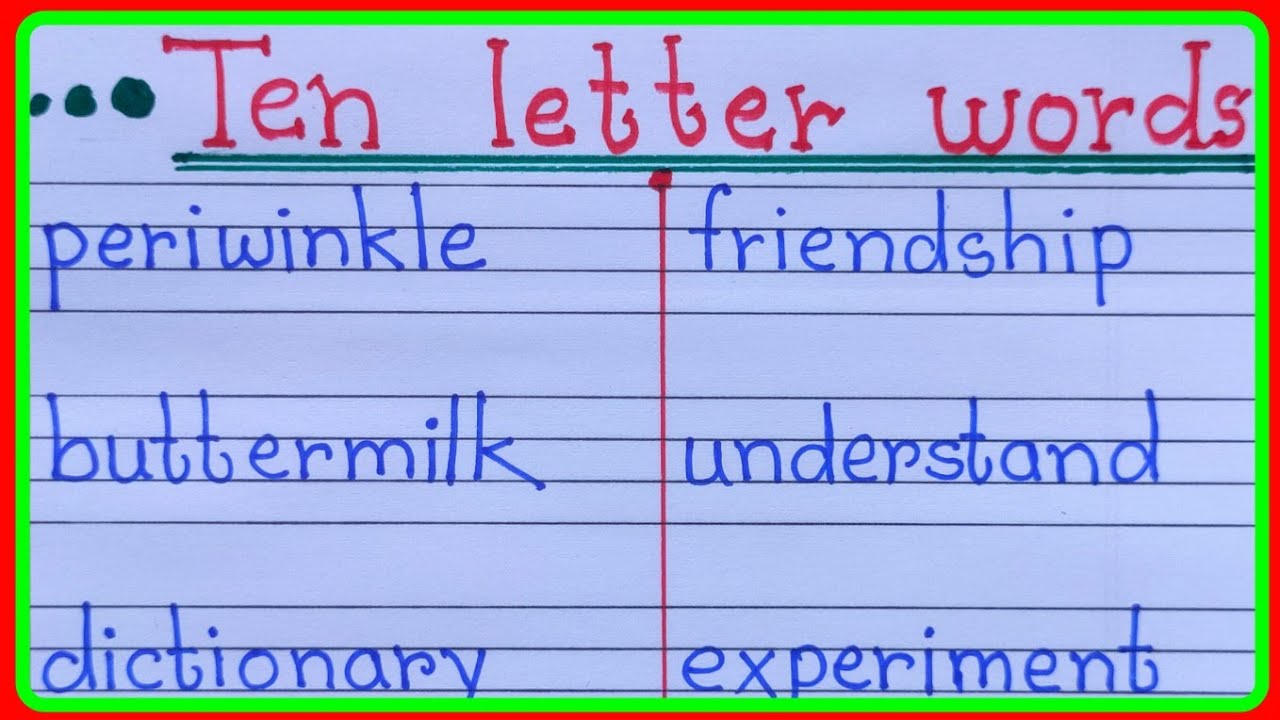 Ten letter words
periwinkle friendship
buttermilk understand
dictionary experiment